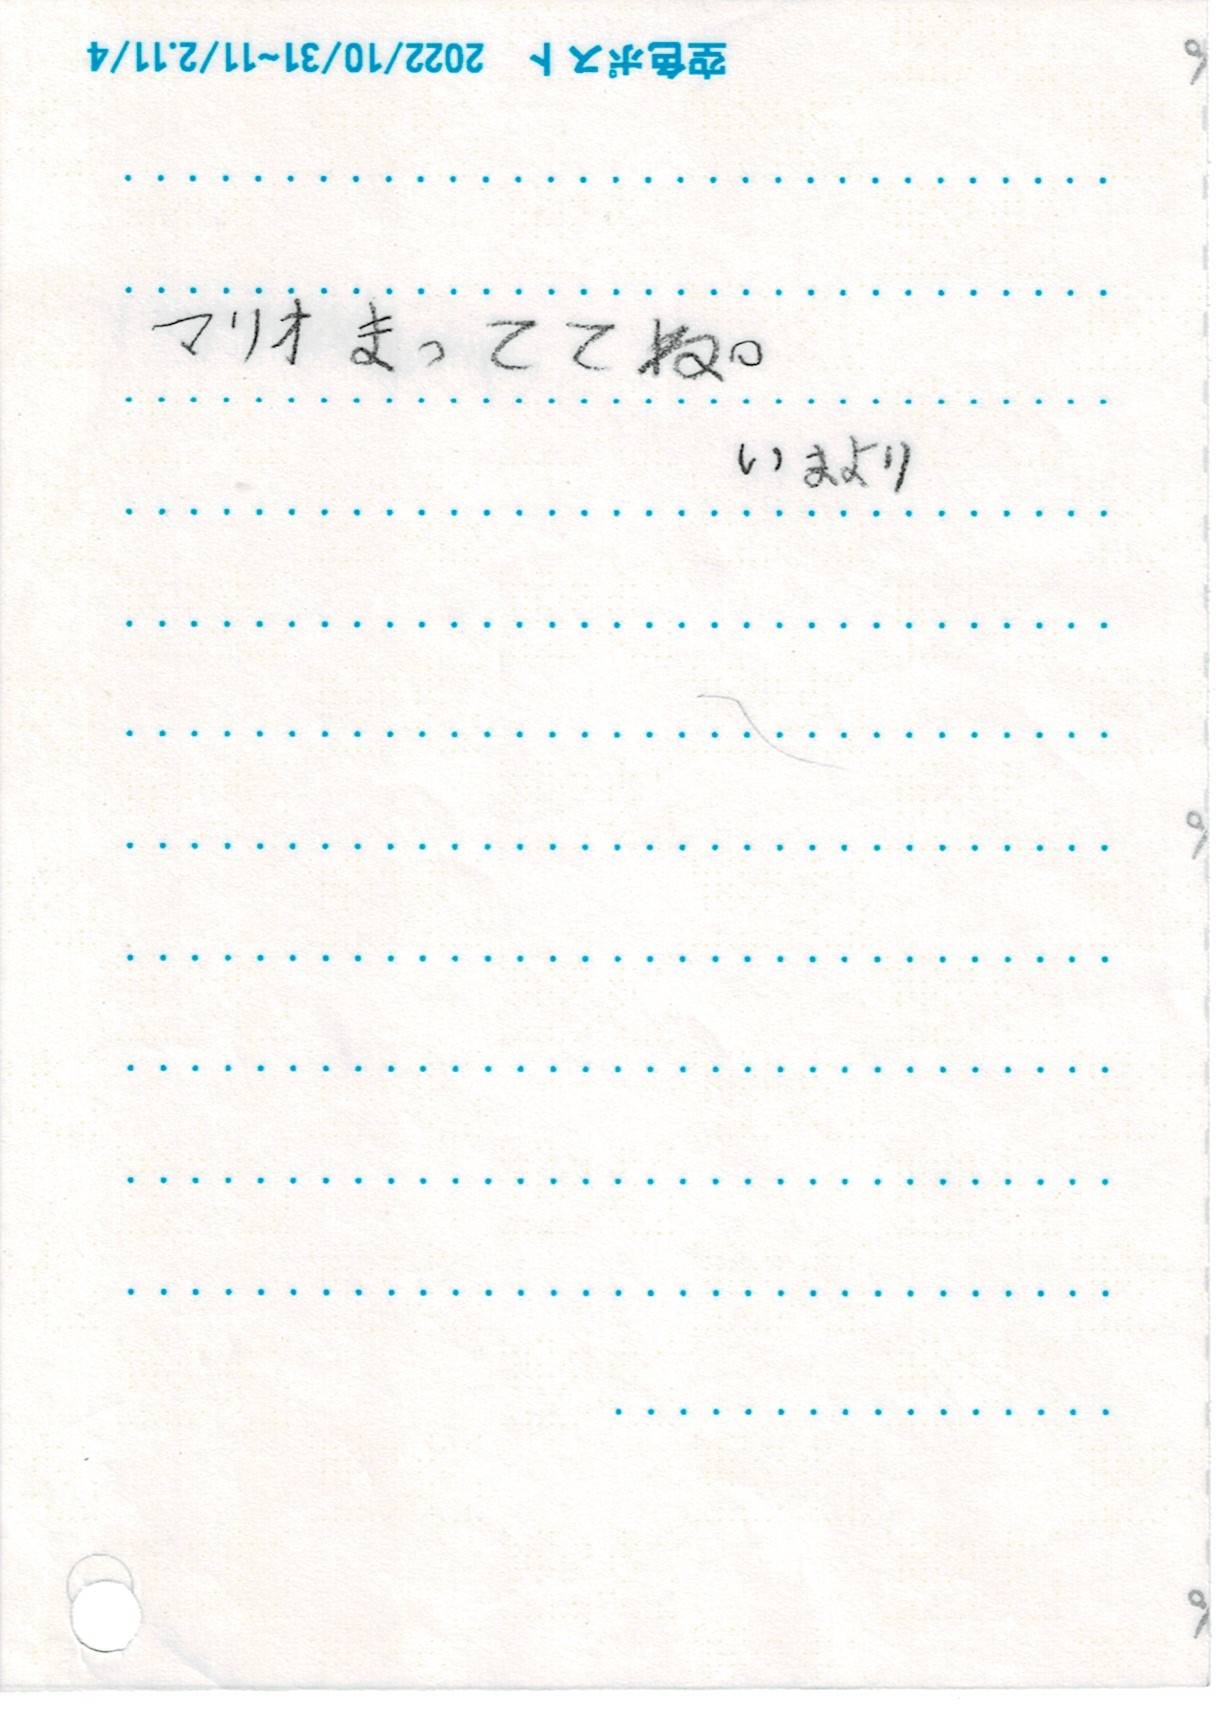 空色ポスト 2022/10/31~11/2.11/4
マリオまっててね。
いまより